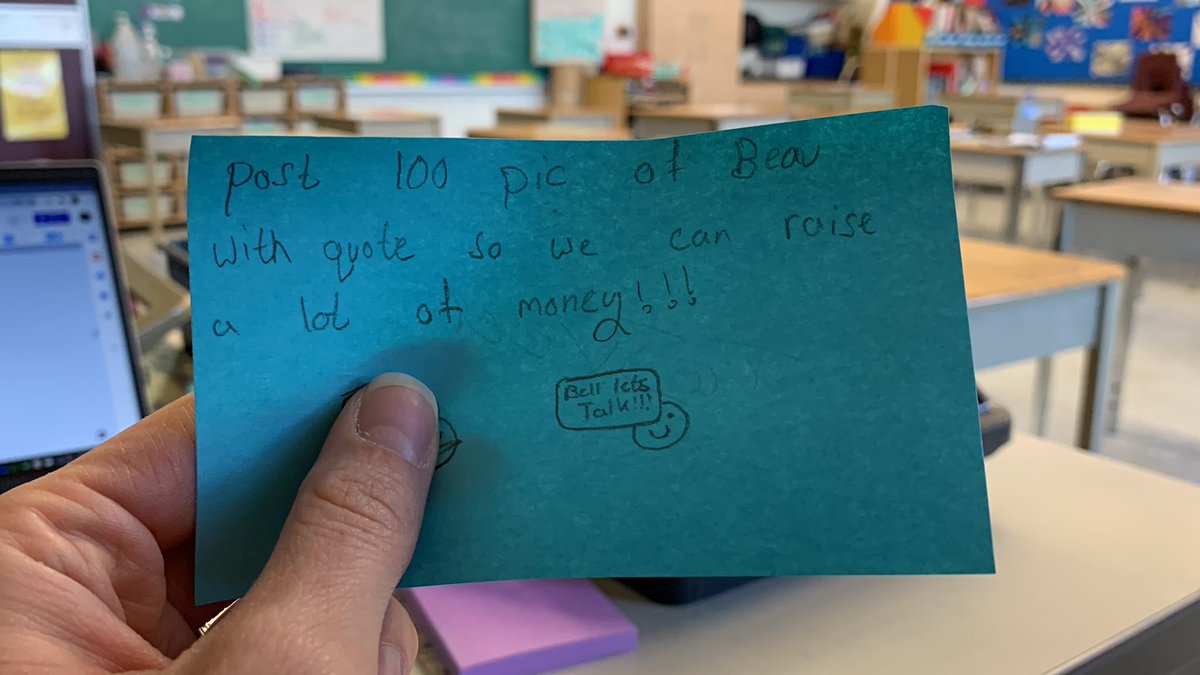 Post 100 pic of Beau
with quote so we can raise
a lot of money!!!
Bell lets
Talk!!!